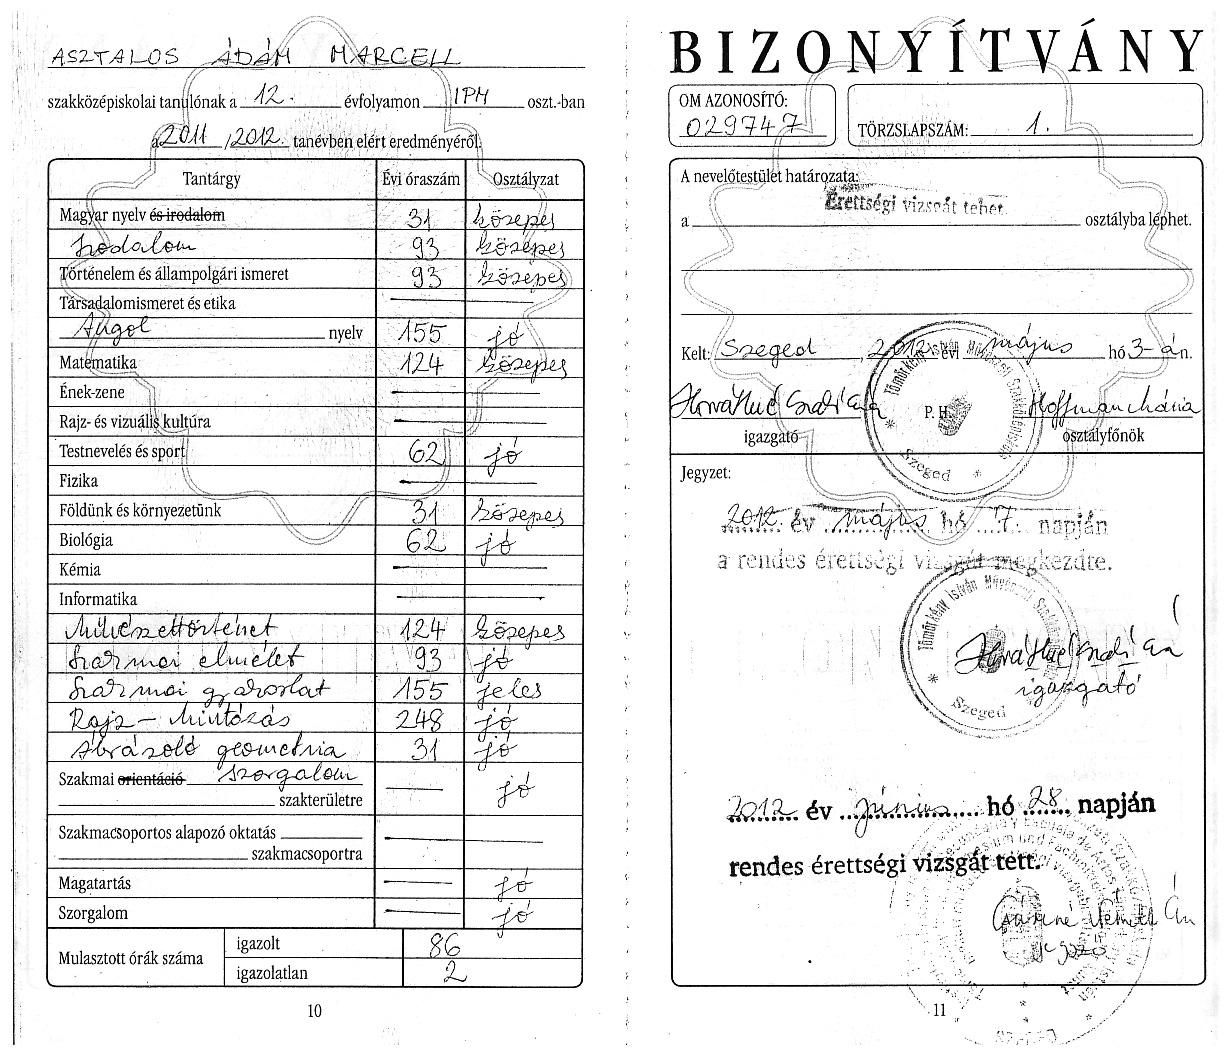 ASZTALOS ÁDÁM MARCELL
szakközépiskolai tanulónak a 12. évfolyamon IPM oszt.-ban
a 2011 /2012. tanévben elért eredményéről.
Tantárgy Évi óraszám Osztályzat
Magyar nyelv és irodalom 31 közepes
Irodalom 93 közepes
Történelem és állampolgári ismeret 93 közepes
Társadalomismeret és etika
Angol nyelv 155 jó
Matematika 124 közepes
Ének-zene
Rajz- és vizuális kultúra
Testnevelés és sport 62 jó
Fizika
Földünk és környezetünk 31 közepes
Biológia 62 jó
Kémia
Informatika
Művészettörténet 124 közepes
Szakmai elmélet 93 jó
Szakmai gyakorlat 155 jeles
Rajz - Mintázás 248 jó
Ábrázoló geometria 31 jó
Szakmai orientáció szorgalom jó
szakterületre
Szakmacsoportos alapozó oktatás
szakmacsoportra
Magatartás jó
Szorgalom jó
Mulasztott órák száma igazolt 86
igazolatlan 2
10
BIZONYÍTVÁNY
OM AZONOSÍTÓ:
029747
TÖRZSLAPSZÁM: 1.
A nevelőtestület határozata:
Érettségi vizsgát tehet.
a osztályba léphet.
Kelt: Szeged, 2012. évi május hó 3-án.
Horváthné Szadi Éva P. H. Hoffmann Mária
igazgató osztályfőnök
Tömörkény István Művészeti Szakközépiskola
* Szeged *
Jegyzet:
2012. év május hó 7 napján
a rendes érettségi vizsgát megkezdte.
Tömörkény István Művészeti
* Szeged
Horváthné Szadi Éva
igazgató
2012 év június hó 28 napján
rendes érettségi vizsgát tett.
11